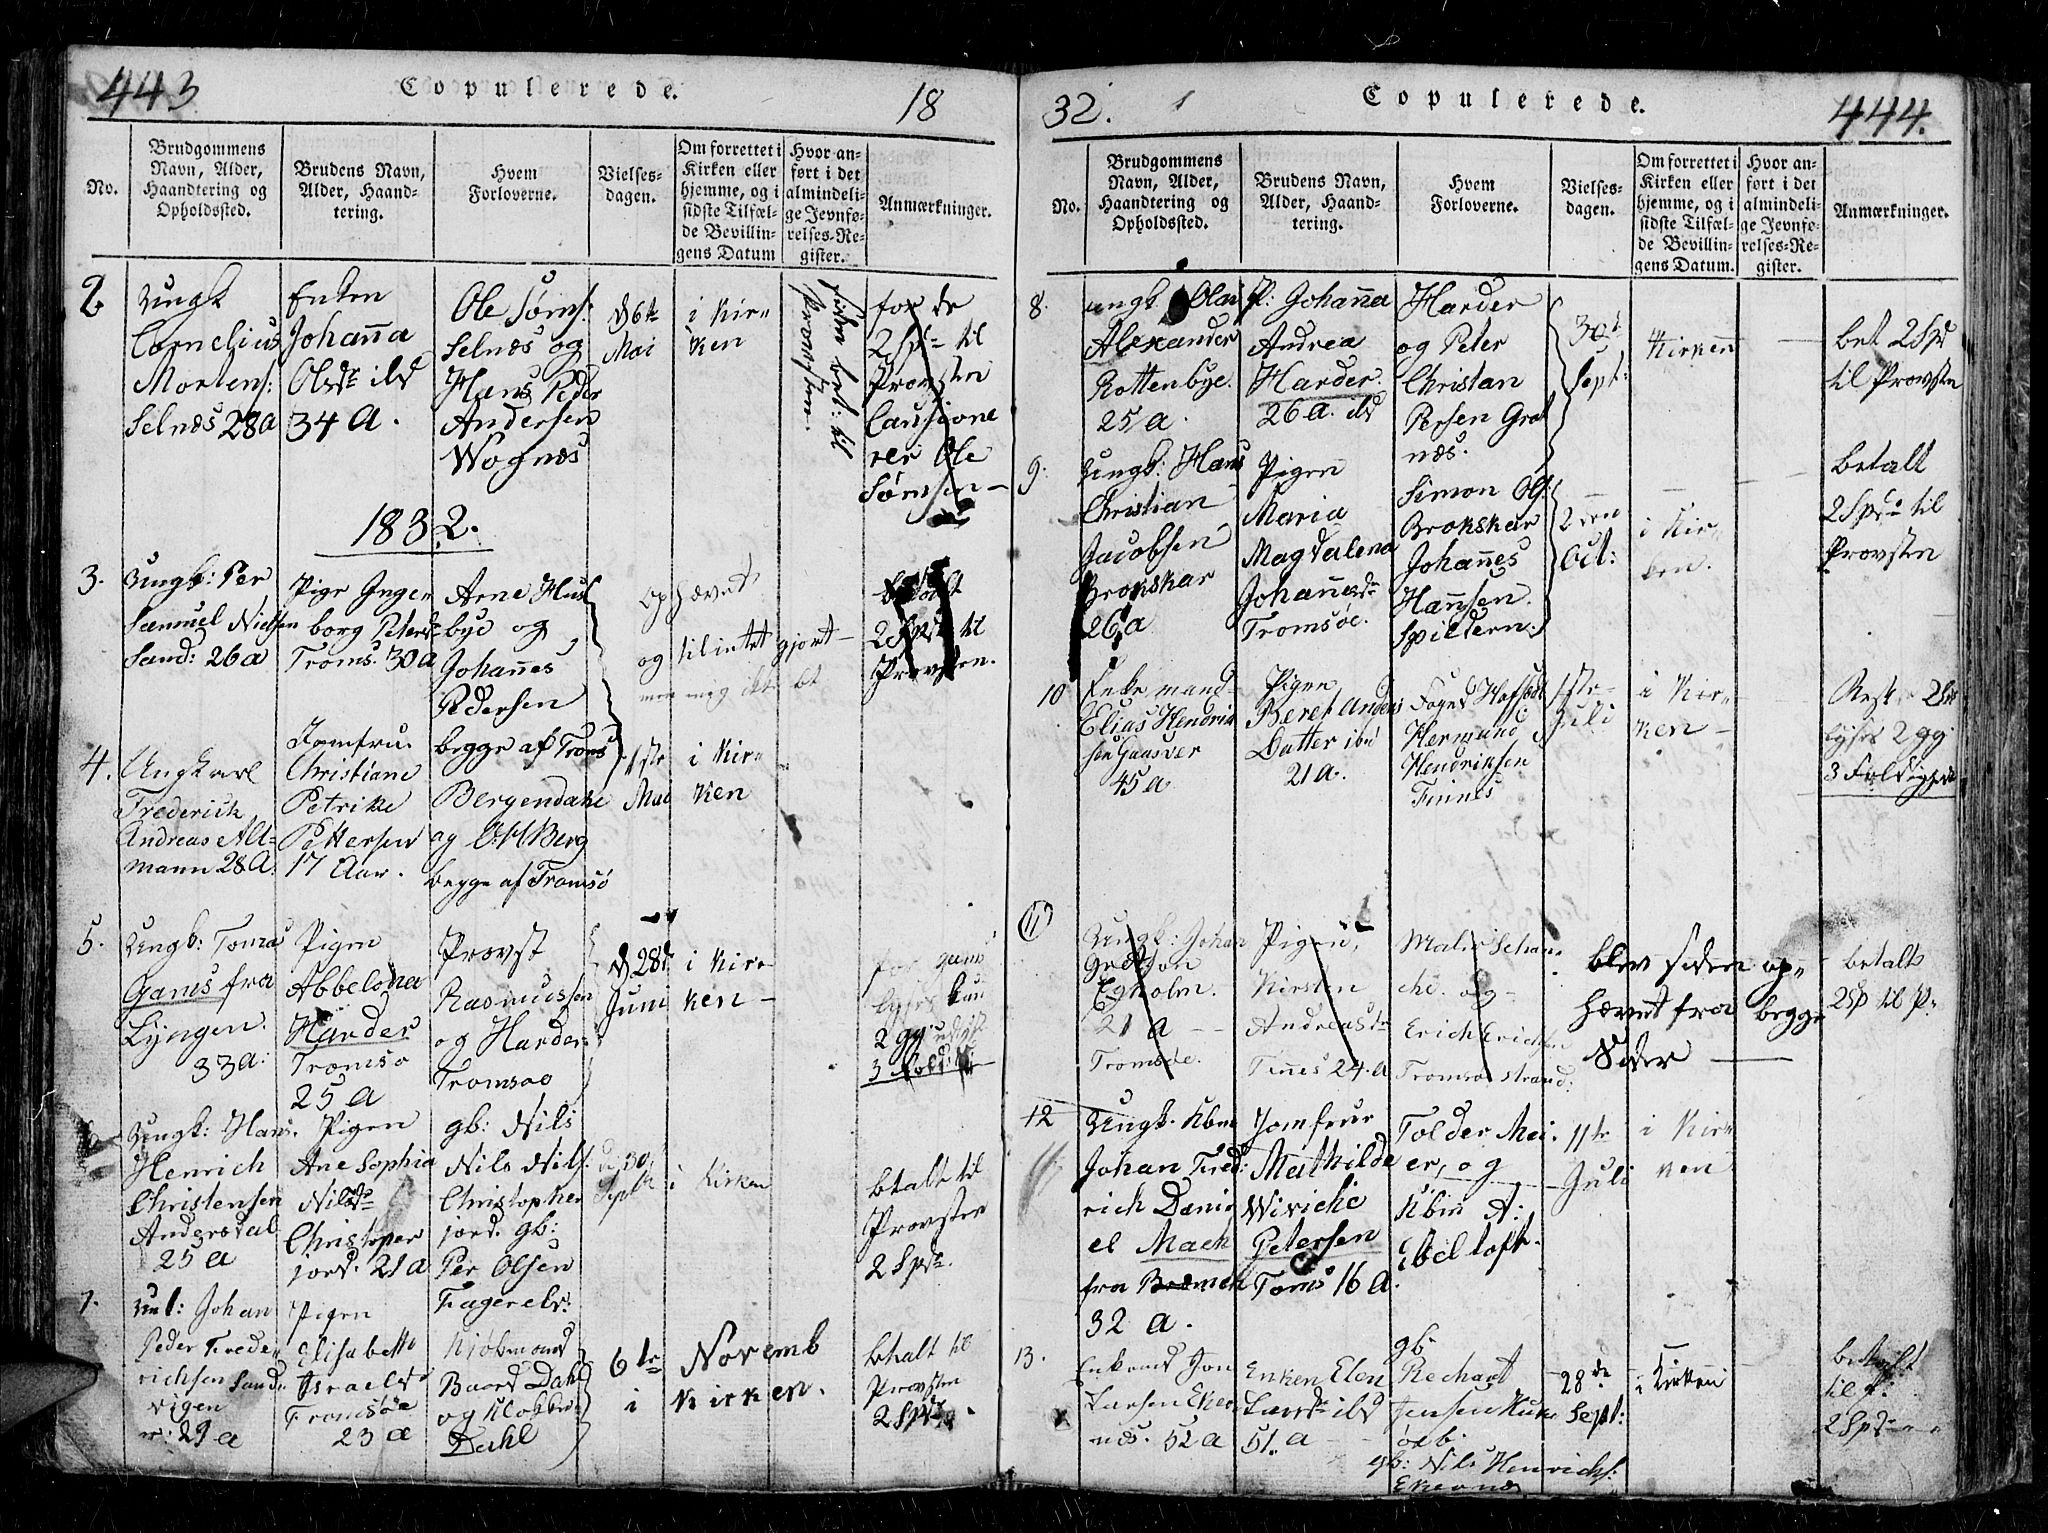 443
Copulerede.
18
No.
Brudgommens
Navn, Alder,
Haandtering og
Opholdssted.
Brudens Navn,
Alder, Haand-
tering.
Hvem
Forloverne.
Vielses-
dagen.
Om forrettet i
Kirken eller
hjemme, og i
sidste Tilfæl-
de Bevillin-
gens Datum
Hvor an-
ført i det
almindeli-
ge Jevnfø-
relses-Re-
gister.
Anmærkninger.
2.
Ungk
Cornelius
Mortens:
Selnæs 28a
Enken
Johanna
Olsdr ibd
34 A.
Ole Søms:
Selnæs og
Hans Peder
Andersen
Wognæs
d 6te
Mai
i Kir-
ken
siden bet: til
Provsten.
for de
2 Spd til
Provsten
Causione
rer Ole
Sømsen
1832.
3.
Ungk: Per
Samuel Nielsen
Sand: 26a
Pige Inge-
borg Petersd
Troms. 30a
Arne Hus
bye og
Johannes
Pedersen
begge af Troms
Ophævet
og tilintetgjort
men mig ikke bet
betalt
2 Spd til
Provsten.
4.
Ungkarl
Frederick
Andreas Alt-
mann 28A.
Jomfru
Christiane
Petrike
Pettersen
17 Aar.
Bergendahl
og O.M Berg
begge af Tromsö
1ste
Mai
i Kir-
ken
5.
Ungk: Tomas
Gams fra
Lyngen.
33a:
Pigen
Abbelona
Harder
Tromsø
25 a
Provst
Rasmussen
og Harder
Tromsøe
d 28d
Juni
i Kir-
ken
2 gg
Ungk: Hans
Henrich
Christensen
Andersdal
25 a
Pigen
Ane Sophia
Nilsdr
Christopher
jord. 21 A
gb: Nils
Nils Nils:
Christopher
jord. gb:
Per Olsen
Fagerels:
30
Septb
i Kirken
betalt til
Provsten
2 Spd.
7.
Johan
Peder Frede-
richsen Sand-
vigen
29 a
Pigen
Elisabeth
Israelsd
Tromsøe
23 a
Kiöbmand
Baard Dahl
og Klokker
Dahl
6te Novemb
i Kirken.
betalt til
Provsten
2 Spd.
32.
Copulerede.
444.
No.
Brudgommens
Navn, Alder,
Haandtering og
Opholdssted.
Brudens Navn,
Alder, Haand-
tering.
Hvem
Forloverne.
Vielses-
dagen.
Om forrettet i
Kirken eller
hjemme, og i
sidste Tilfæl-
de Bevillin-
gens Datum.
Hvor an-
ført i det
almindeli-
ge Jevnfø-
relses-Re-
gister.
Anmærkninger.
8.
ungk Olai
Alexander
Rottenbye.
25 a.
P: Johanna
Andrea
Harder.
26 a. ibd
Harder
og Peter
Christian
Persen Grøt
næs.
30t
Sept:
Kirken
bet 2 Spd
til Provsten
9.
Ungk: Hans
Christian
Jacobsen
Brokskar
26 a
Pigen
Maria
Magdalena
Johannesdr
Tromsöe.
Simon Ols:
Brokskar
Johannes
Hansen
Spildern.
2den
Oct:
i Kir-
ken.
betalt
2 Spd til
Provsten
10
Enkemand
Elias Hendrik
sen Gaasvær
45 a
Pigen
Beret Anders
Datter ibd
21 a.
Foged Hofstæd
Hermand
Hendriksen
Finnes
1ste
Juli
i Kir-
ken
Rest
lyses 2 gg
11
Ungk: Johan
Egholm.
21 a
Tromsöe.
Pigen,
Kirsten
Andreasdr
Finnes 24. a
Malir Schan-
che. og
Erich Erichsen
Tromsøstrand:
blev siden op-
hævet fra begge
Sider
betalt
2 Sp til P.
12
Ungk. Kbm
Johan Fred:
rich Dani
el Mack
fra
32 a.
Jomfrue
Mathilde
Wiviche
Petersen
Toms 16 a.
Tolder Mei-
er, og
Kbm A:
Ebeltoft.
11te
Juli
i Kir-
ken
13.
Enkemd Jon
Larsen Eker
næs. 52 a
Enken Elen
Larsdr ibd
51. a
gb.
Rechart
Jensen
gb: Nils Henrichs:
Ekernæs
28de
Sept:
i Kirken
betalt
til P:
2 Spd